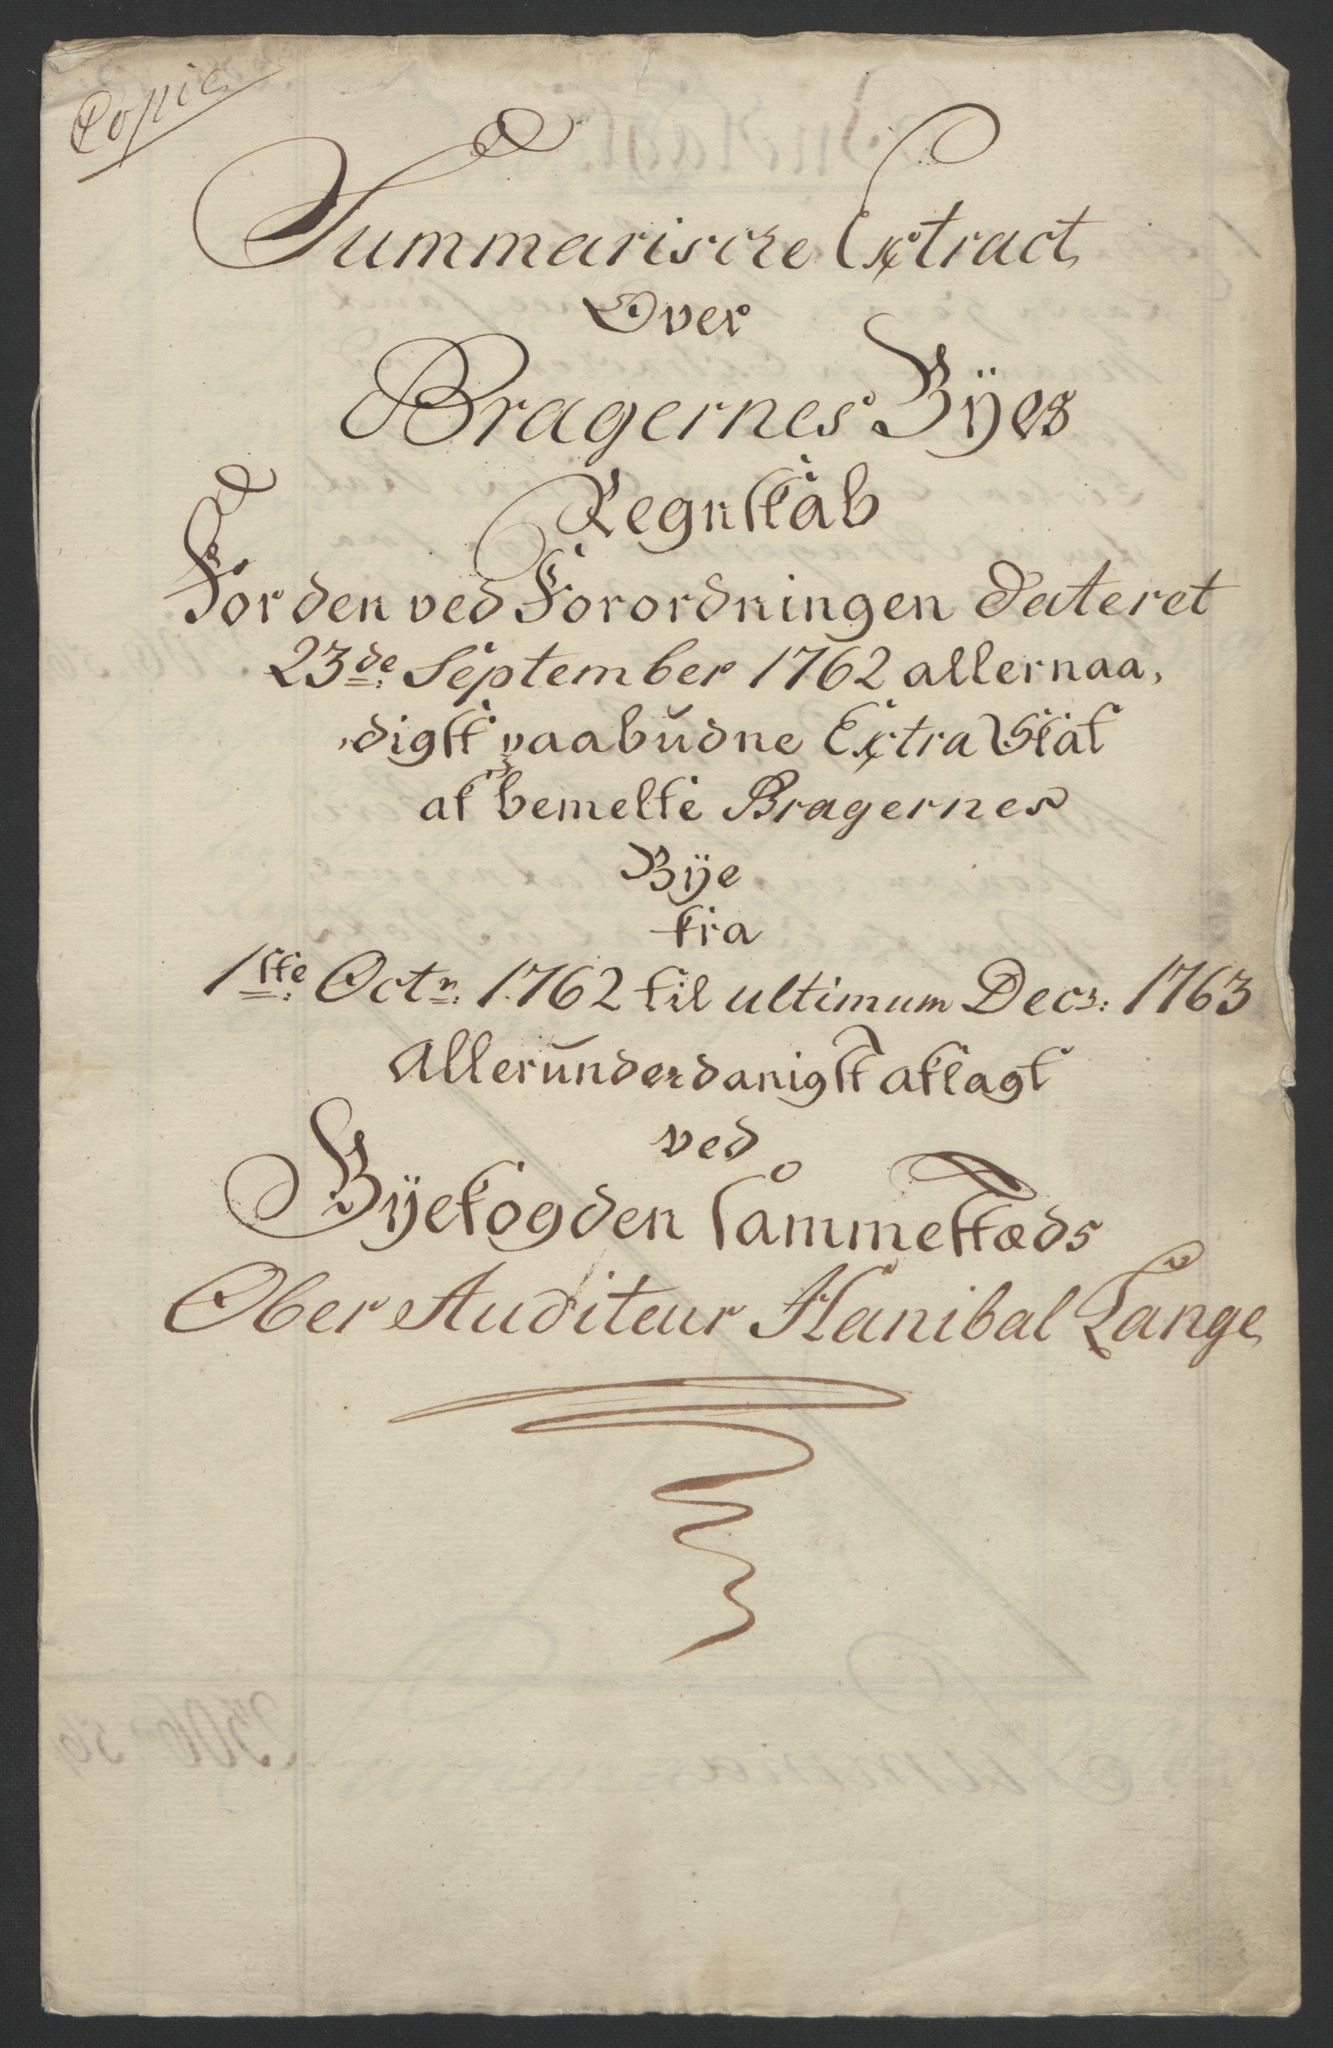 Copie
Summariske Extract
Over
Bragernes Byes
Regnskab
For den ved Forordningen dateret
23de: September 1762 allernaa,
,digst paabudne Extra Skat
af bemelte Bragernes
Bÿe
fra
1ste: Octr: 1762 til ultimum Decr: 1763
Allerunderdanigst aflagt
ved
Bÿefogden sammestæds
Ober Auditeur Hanibal Lange